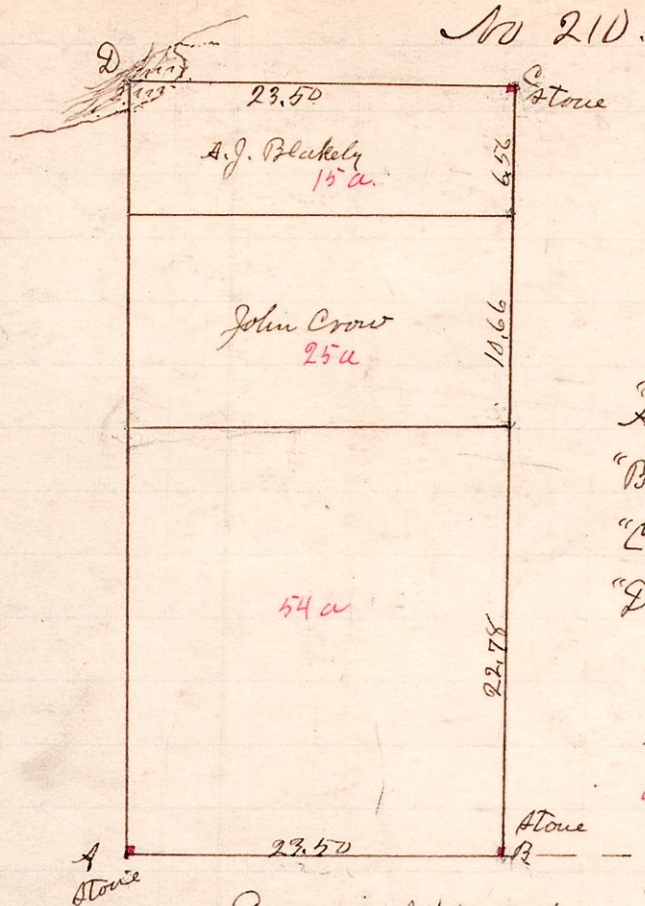 No 210.
D
23.50
C
Stone
A. J. Blakely
15 a.
6.56
John Crow
25 a
10.66
"B
"C
"D
54 a
22.78
Stone
A
23.50
B
Stone